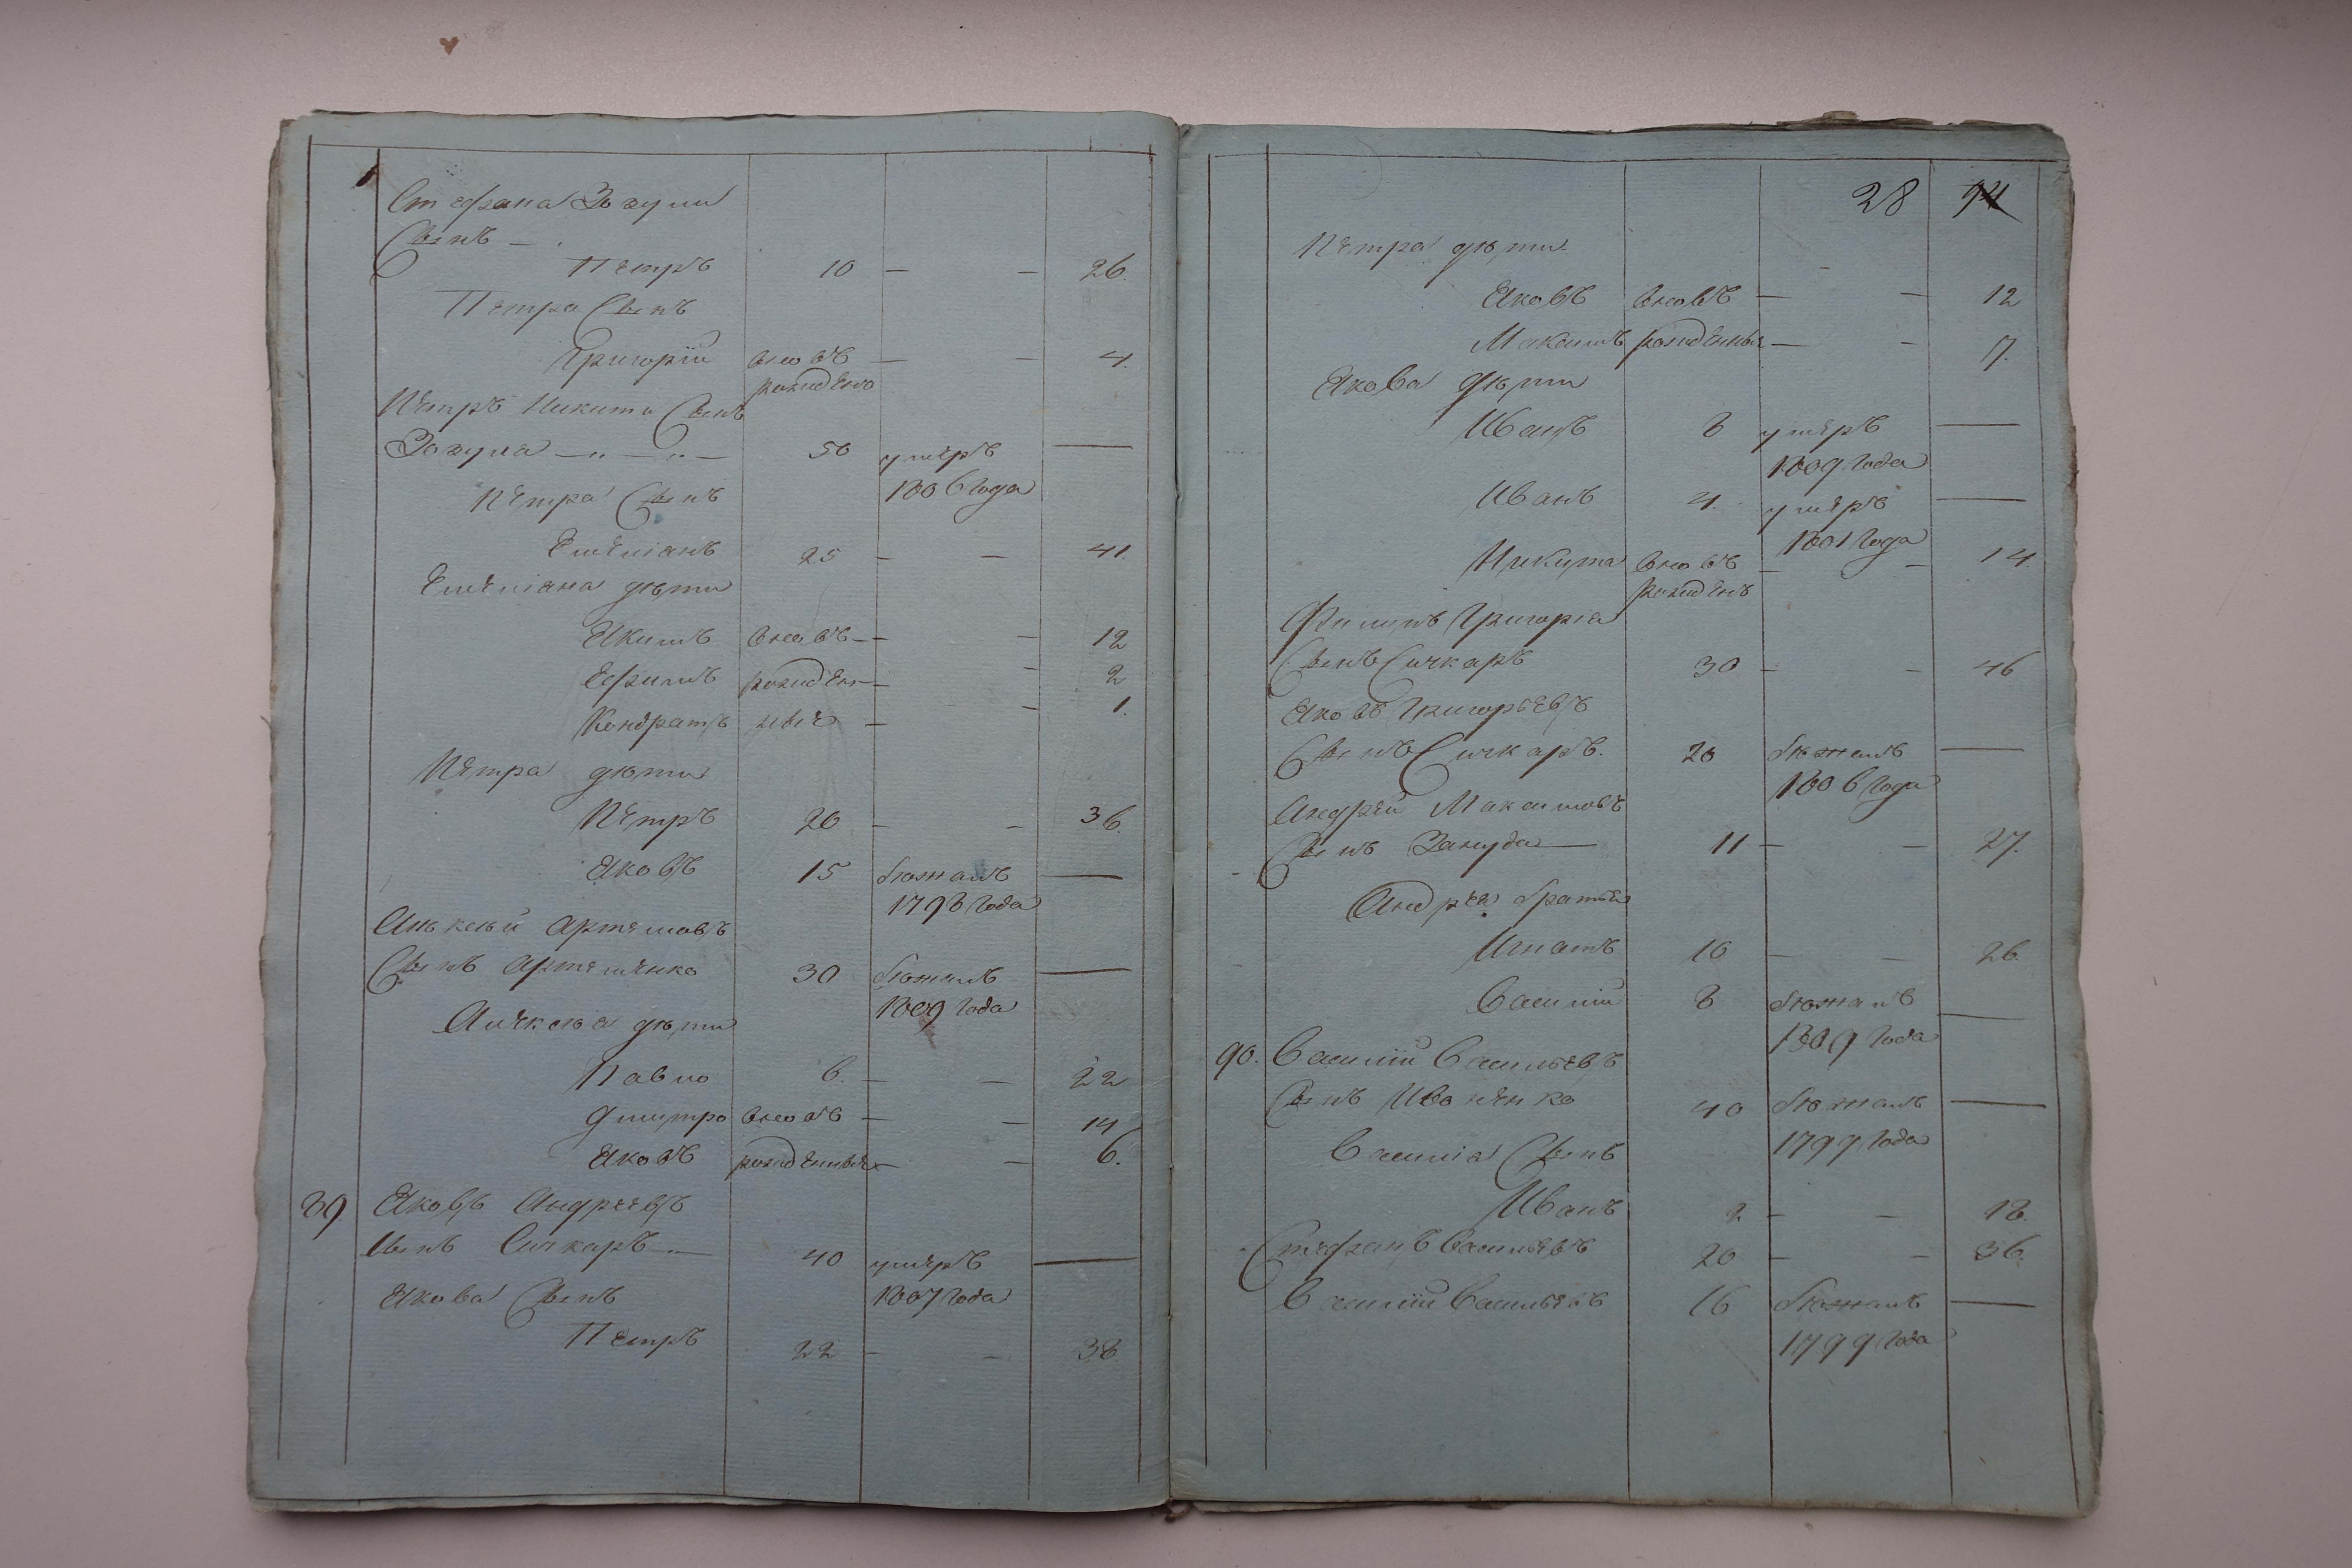 Стефана Зозули
Сынъ —
Петръ 10 — — 26.
Петра Сынъ
Григорій вновь — — 4.
рожденъ
Петръ Никита Сынъ
Зозуля — „ — „ — 50 умеръ —
1806 года
Петра Сынъ
Емеліанъ 25 — — 41.
Емеліана дѣти
Якимъ вновь — — 12
Ефимъ рожден — — 2
Кондратъ ныя — — 1.
Петра дѣти
Петръ 20 — — 36.
Яковъ 15 бѣжалъ —
1798 года
Алѣксѣй Артемовъ
Сынъ Артеменко 30 бѣжалъ —
1809 года
Алексѣя дѣти
Павло 6. — — 22
Дмитро вновь — — 14
Яковъ рожденныя — — 6.
89 Яковъ Андреевъ
Сынъ Сичкаръ — 40 умеръ —
1807 года
Якова Сынъ
Петръ 22 — — 38
28 94
Петра дѣти
Яковъ вновь — — 12
Максимъ рожденныя — — 7.
Якова дѣти
Иванъ 8 умеръ —
1809 года
Иванъ 4. умеръ —
1801 года
Никита вновь — — 14
рожденъ
Филипъ Григорія
Сынъ Сичкаръ 30 — — 46
Яковъ Григорьевъ
Сынъ Сичкаръ. 20 бѣжалъ —
1806 года
Андрей Максимовъ
Сынъ Зануда — 11 — — 27.
Андрея братья
Игнатъ 10 — — 26.
Василій 8 бѣжалъ —
1809 года
90. Василій Васильевъ
Сынъ Иваненко 40 бѣжалъ —
1799 года
Василія Сынъ
Иванъ 2 — — 18.
Стефанъ Васильевъ 20 — — 36.
Василій Васильевъ 16 бѣжалъ —
1799 года